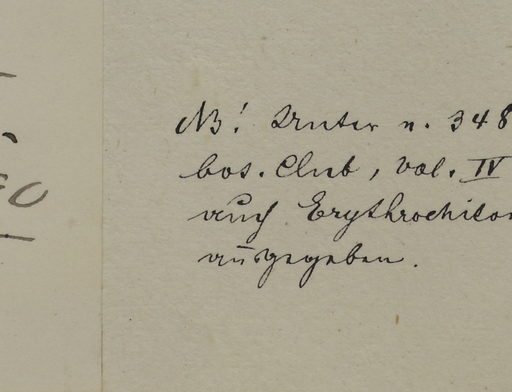 NB! Unter n. 348
bot. Club, vol. IV
auch Erythrochiton
ausgegeben.